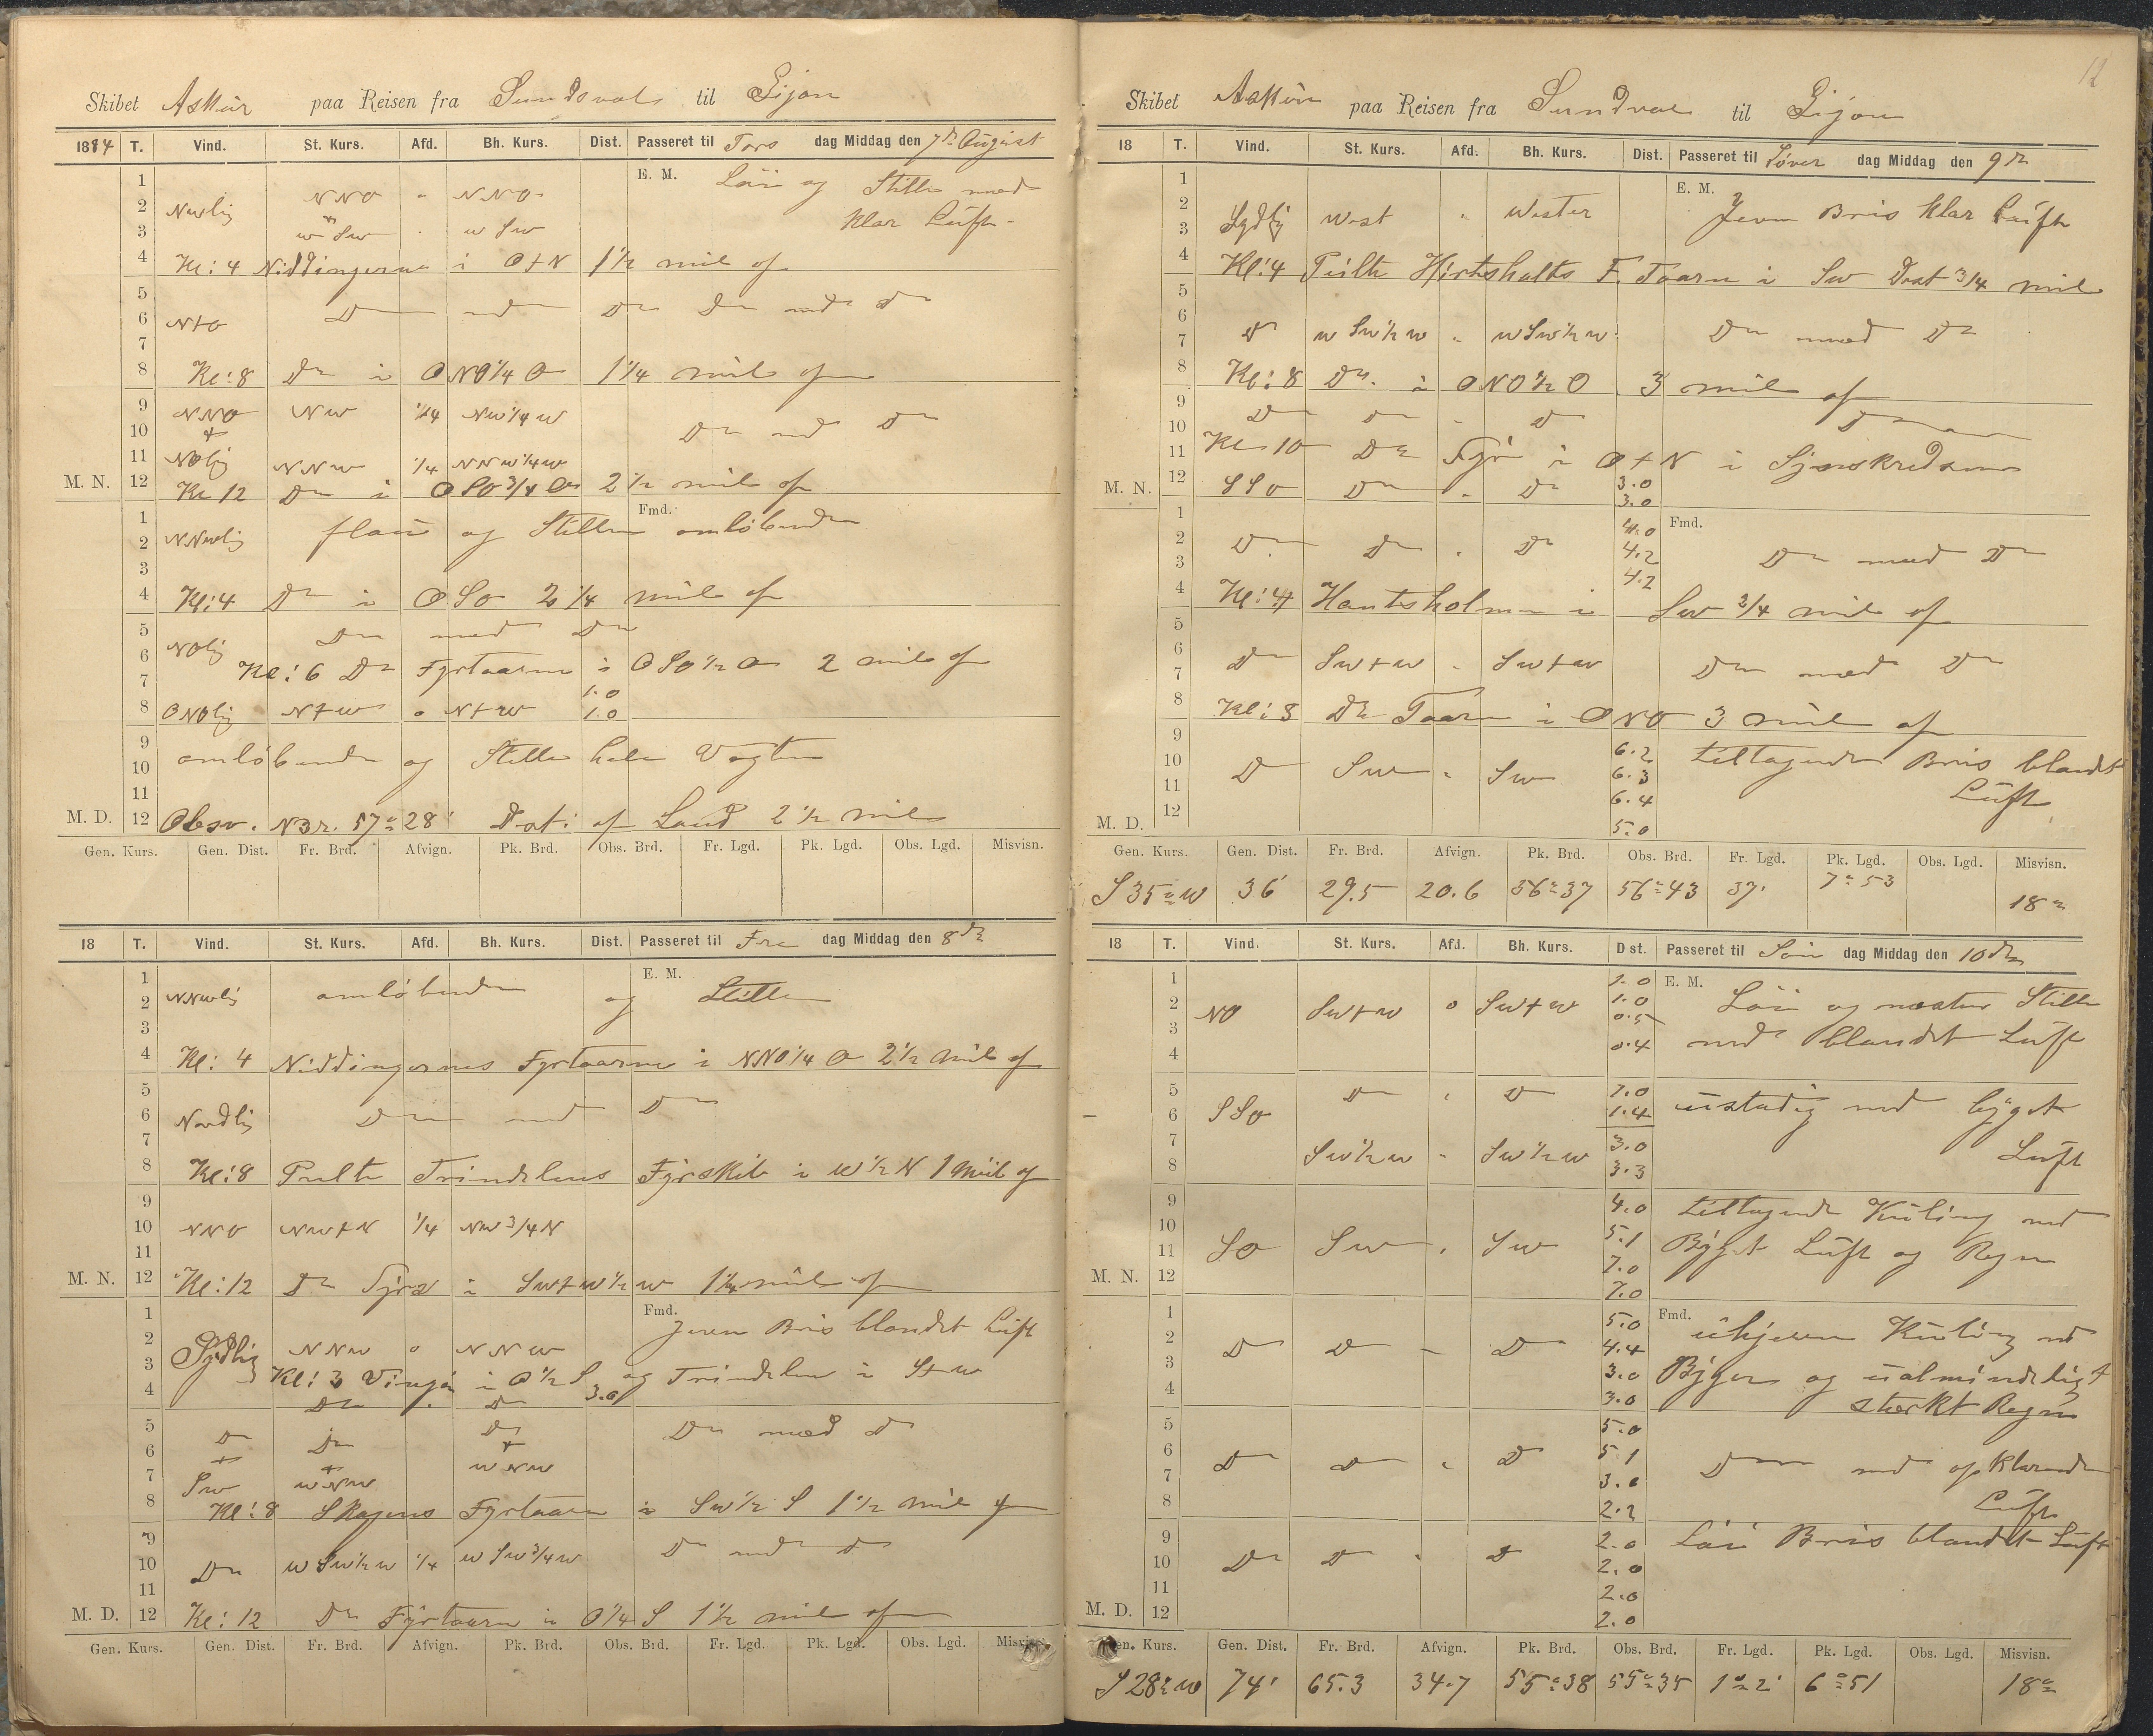 Skibet Askur paa Reisen fra Sundsval til Gijon
1884 T. Vind. St. Kurs. Afd. Bh. Kurs. Dist. Passeret til Tors dag Middag den 7de August
1 E. M. Löi og Stille med
2 NNO " NNO
3 w Sw " w Sw klar Luft
4 Kl: 4 Niddingerne i O t N 1 1/2 mil af
5
6 N t O Do med Do
7
8 Kl: 8 Do i ONO 1/4 O 1 1/4 mil af
9 NNO NW 1/4 NW 1/4 W
10 Do med Do
11 NOlig NNW 1/4 NNW 1/4 W
M. N. 12 Kl 12 Do i OSO 3/4 O 2 1/2 mil af
1 Fmd.
2 flau og Stille omløbende
3
4 Kl: 4 Do i OSO 2 1/4 mil af
5 NOlig Do med Do
6 Kl: 6 Do Fyrtaarne i OSO 1/2 O 2 mil af
7 1.0
8 ONOlig N t W o N t W 1.0
9 omløbende og Stille hele Vagten
10
11
M. D. 12 Obsv. N Br. 57° 28' Dst: af Land 2 1/2 mil
Gen. Kurs. Gen. Dist. Fr. Brd. Afvign. Pk. Brd. Obs. Brd. Fr. Lgd. Pk. Lgd. Obs. Lgd. Misvisn.
18 T. Vind. St. Kurs. Afd. Bh. Kurs. Dist. Passeret til Fre dag Middag den 8de
1 E. M.
2 NNWlig omløbende og Stille
3
4 Kl: 4 Niddingernes Fyrtaarne i NNO 1/4 O 2 1/2 mil af
5
6 Nordlig Do med Do
7
8 Kl: 8 Peilte Trindelens Fyrskib i W 1/2 N 1 Mil af
9
10 NNO NW t N 1/4 NW 3/4 N
11
M. N. 12 Kl: 12 Do Fyr i SW t W 1/2 W mil af
1 Fmd. Jevn Bris blandet Luft
2 Sydlig NNW o NNW
3 Kl: 3 Vingå i O 1/2 S og Trindelen i S t W
4 Do Do 3.0
5 Do Do Do Do med Do
6
7 Sw WNW WNW
8 Kl: 8 Skagens Fyrtaarn i SW 1/2 S 1 1/2 mil af
9 Do med Do
10 Do W SW 1/2 W 1/4 W SW 3/4 W
11
M. D. 12 Kl: 12 Do Fyrtaarn i O 1/4 S 1 1/2 mil af
Gen. Kurs. Gen. Dist. Fr. Brd. Afvign. Pk. Brd. Obs. Brd. Fr. Lgd. Pk. Lgd. Obs. Lgd.
12
Skibet Askur paa Reisen fra Sundval til Gijon
18 T. Vind. St. Kurs. Afd. Bh. Kurs. Dist. Passeret til Løver dag Middag den 9de
1 E. M.
2 Jevn Bris klar Luft
3 Sydlig West " Wester
4 Kl: 4 Peilte Hirtshalts F. Taarn i SW Dist 3/4 mil
5
6
7 Do W SW 1/2 W " W SW 1/2 W Do med Do
8 Kl: 8 Do. i ONO 1/2 O 3 mil af
9 Do Do " Do Do
10
11 Kl 10 Do Fyr i O t N i Synskredsen
12 SSO Do " Do 3.0
M. N. 3.0
1 4.0 Fmd.
2 Do Do " Do 4.2 Do med Do
3 4.2
4 Kl: 4 Hantsholmen i SW 3/4 mil af
5
6
7 Do SW t W " SW t W Do med Do
8 Kl: 8 Do Taarn i ONO 3 mil af
9 6.2 tiltagende Bris blandet
10 Do SW " SW 6.3
11 6.4 Luft
M. D. 12 5.0
Gen. Kurs. Gen. Dist. Fr. Brd. Afvign. Pk. Brd. Obs. Brd. Fr. Lgd. Pk. Lgd. Obs. Lgd. Misvisn.
S 35° W 36' 29.5 20.6 56° 37 56° 43 37' 7° 53 18°
18 T. Vind. St. Kurs. Afd. Bh. Kurs. D st. Passeret til Søn dag Middag den 10de
1 1.0 E. M.
2 NO SW t W o SW t W 1.0 Löi og næsten Stille
3 0.5
4 0.4 med blandet Luft
5 Do " Do 1.0
6 SSO 1.4 ustadig med byget
7 3.0
8 SW 1/2 W " SW 1/2 W 3.3 Luft
9 4.0 tiltagende Kuling med
10 5.1
11 SO SW " SW 7.0 Byget Luft og Regn
M. N. 12 7.0
1 5.0 Fmd. ujevn Kuling med
2 Do Do " Do 4.4
3 3.0 Byger og ualmindeligt
4 3.0 stærkt Regn
5 5.0
6 Do Do " Do 5.1
7 3.0 Do med opklarende
8 2.2 Luft
9 2.0 Löi Bris blandet Luft
10 Do Do " Do 2.0
11 2.0
M. D. 12 2.0
Kurs. Gen. Dist. Fr. Brd. Afvign. Pk. Brd. Obs. Brd. Fr. Lgd. Pk. Lgd. Obs. Lgd. Misvisn.
S 28° W 74' 65.3 34.7 55° 38 55° 35 1° 2' 6° 51 18°